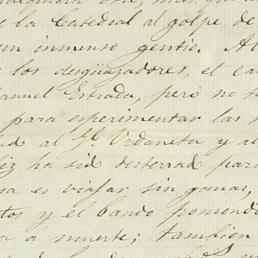 e la Catedral al golpe de
un inmenso gentio. Al
los desguazadores, el ca
anuel Estrada, pero no se
para experimentar las
ud al Sr. Urdaneta y al
liz ha sid desterrad para
sa es viajar sin ganas,
tos y el bando poniendo
ca a muerte; tambien